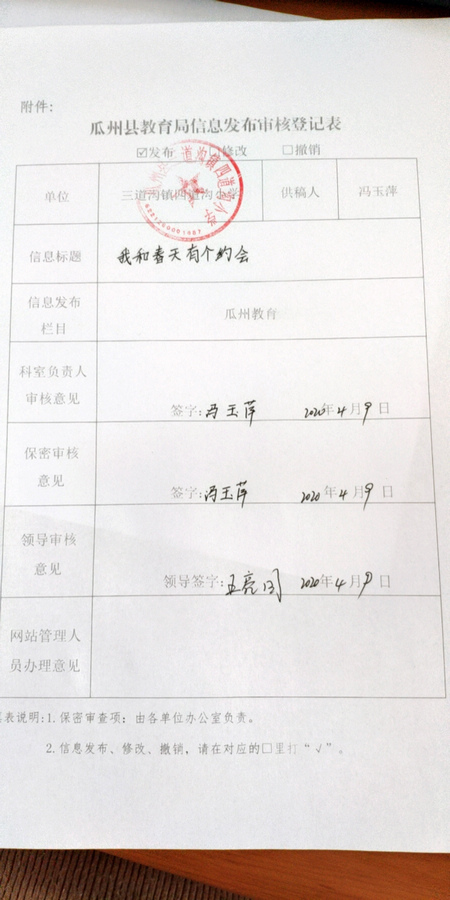 附件:
瓜州县教育局信息发布审核登记表
☑发布 □修改 □撤销
单位 三道沟镇四道沟小学 供稿人 冯玉萍
信息标题 我和春天有个约会
信息发布
栏目
瓜州教育
科室负责人
审核意见
签字:冯玉萍 2020年4月9日
保密审核
意见
签字:冯玉萍 2020年4月9日
领导审核
意见
领导签字: 2020年4月9日
网站管理人
员办理意见
表说明:1.保密审查项:由各单位办公室负责。
2.信息发布、修改、撤销,请在对应的□里打“√”。